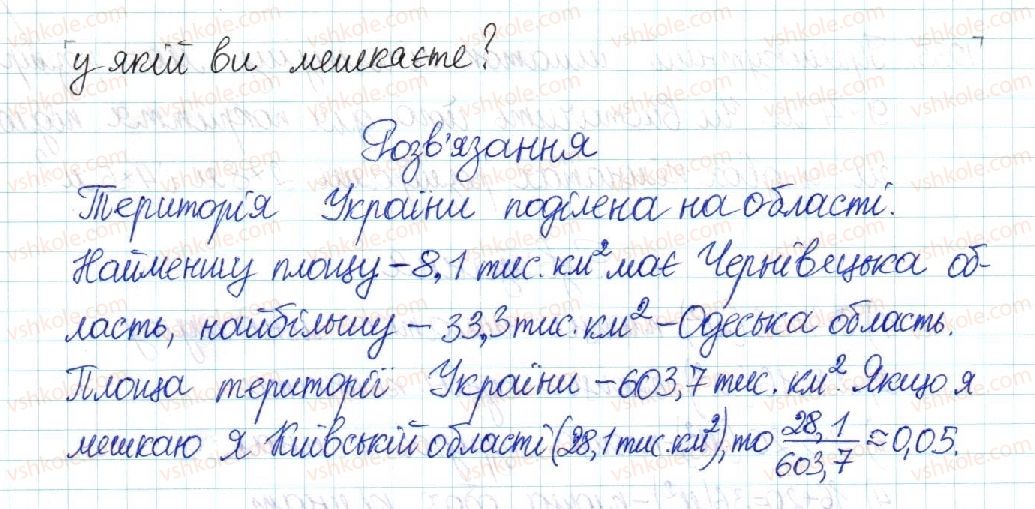 у якій ви мешкаєте?
Розв'язання
Територія України поділена на області.
Найменшу площу – 8,1 тис. км² має Чернівецька об-
ласть, найбільшу – 33,3 тис. км² – Одеська область.
Площа території України – 603,7 тис. км². Якщо я
мешкаю я Київській області (28,1 тис. км²), то 28,1/603,7 ≈ 0,05.